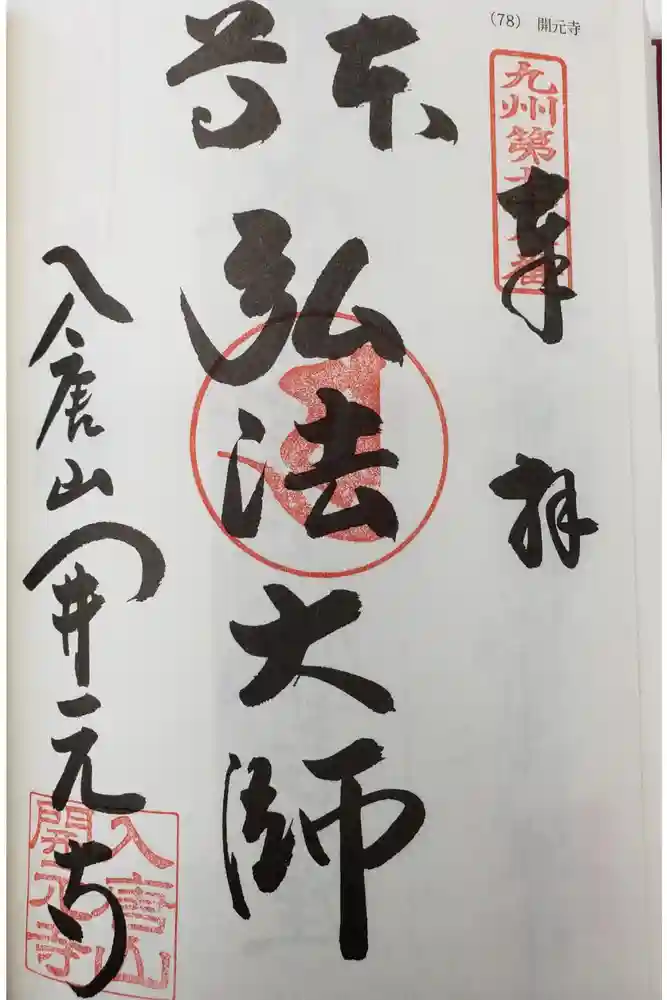 (78) 開元寺
九州第
番
奉拝
本尊
弘法大師
入唐山開元寺
入唐山
開元寺